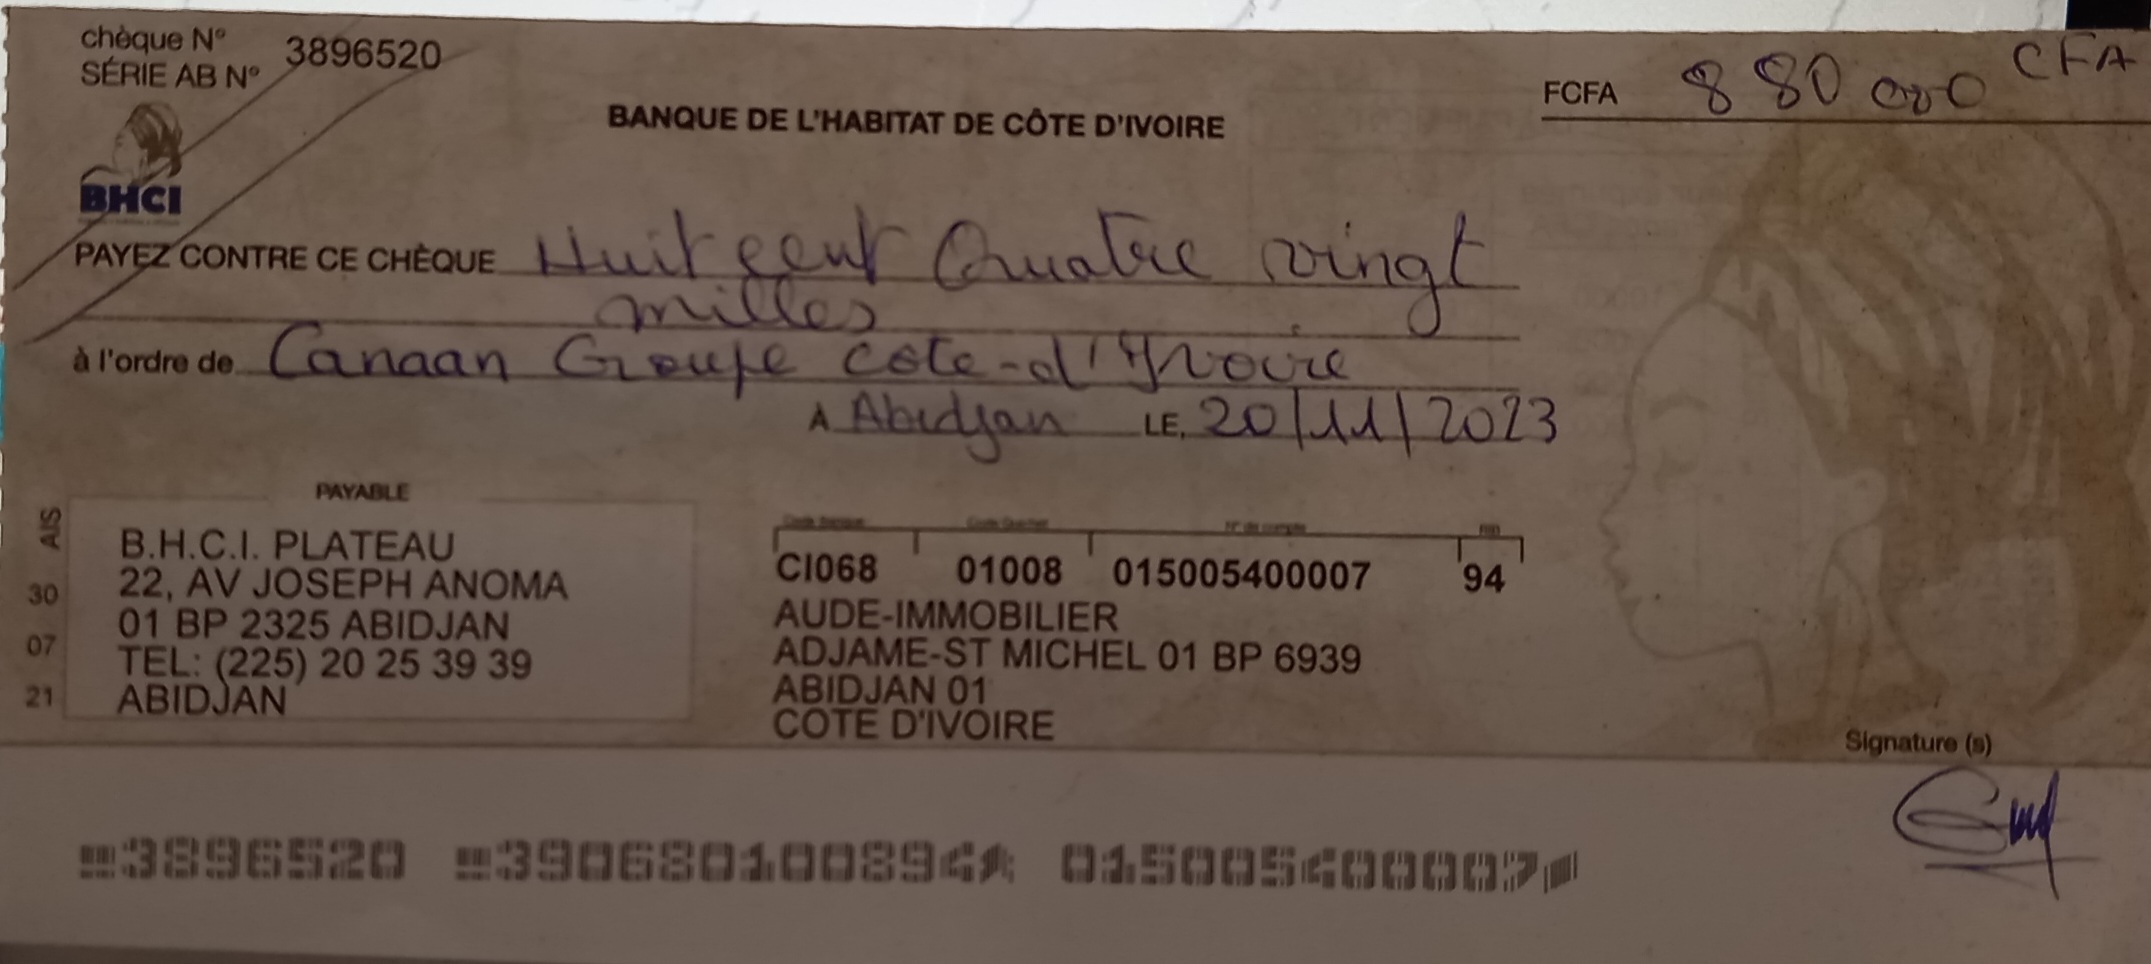 chèque N° 3896520
SÉRIE AB N°
FCFA 880 000 CFA
BANQUE DE L'HABITAT DE CÔTE D'IVOIRE
BHCI
PAYEZ CONTRE CE CHÈQUE Huit cent Quatre vingt
milles
à l'ordre de Canaan Groupe cote-d'Ivoire
A Abidjan LE, 20/11/2023
PAYABLE
B.H.C.I. PLATEAU
22, AV JOSEPH ANOMA
01 BP 2325 ABIDJAN
TEL: (225) 20 25 39 39
ABIDJAN
AIS
30
07
21
Code Banque Code Guichet N° de compte RIB
CI068 01008 015005400007 94
AUDE-IMMOBILIER
ADJAME-ST MICHEL 01 BP 6939
ABIDJAN 01
COTE D'IVOIRE
Signature (s)
3896520 390680100894 015005400007